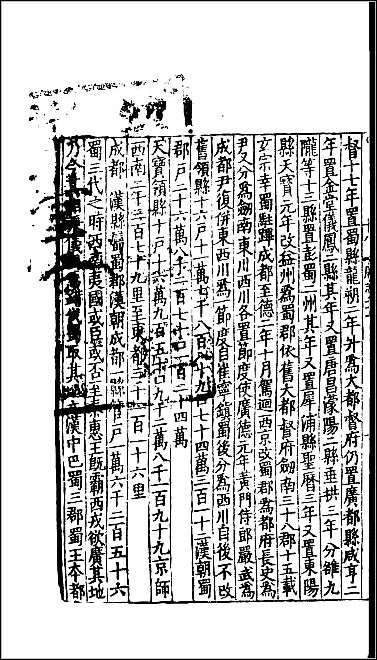 督十七年置蜀縣龍朔二年升為大都督府仍置廣都縣咸亨二
年置金堂儀鳳二縣其年又置唐昌濛陽二縣垂拱三年分雒九
隴等十三縣置彭蜀二州其年又置犀浦縣聖曆三年又置東陽
縣天寶元年改益州為蜀郡依舊大都督府劒南三十八郡十五載
玄宗幸蜀駐蹕成都至德二年十月駕迴西京改蜀郡為都府長史為
尹又分為劒南東川西川各置節度使廣德元年黃門侍郎嚴武為
成都尹復併東西川為一節度自崔寧鎮蜀後分為西川自後不改
舊領縣十六戶十一萬七千八百十九口七十四萬三百一十二漢朝蜀
郡戶二十六萬八千二百七十口一百二十四萬
天寶領縣十戶十六萬九百五十口九十二萬八千一百九十九京師
西南二千三百七十九里至東都三千二百一十六里
成都 漢縣屬蜀郡漢朝成都一縣管戶一萬六千二百五十六
蜀三代之時西南夷國或臣或否至秦惠王旣霸西戎欲廣其地
乃令 蜀取其 漢中巴蜀三郡蜀王本都